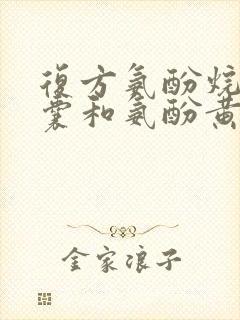 復方氨酚烷
囊和氨酚黄
金家浪子